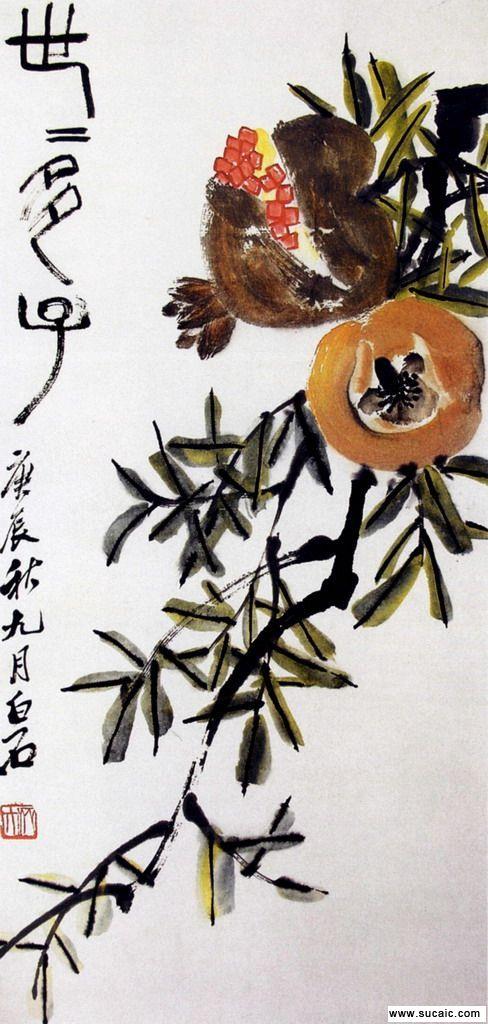 世〻多子
庚辰秋九月白石
www.sucaic.com